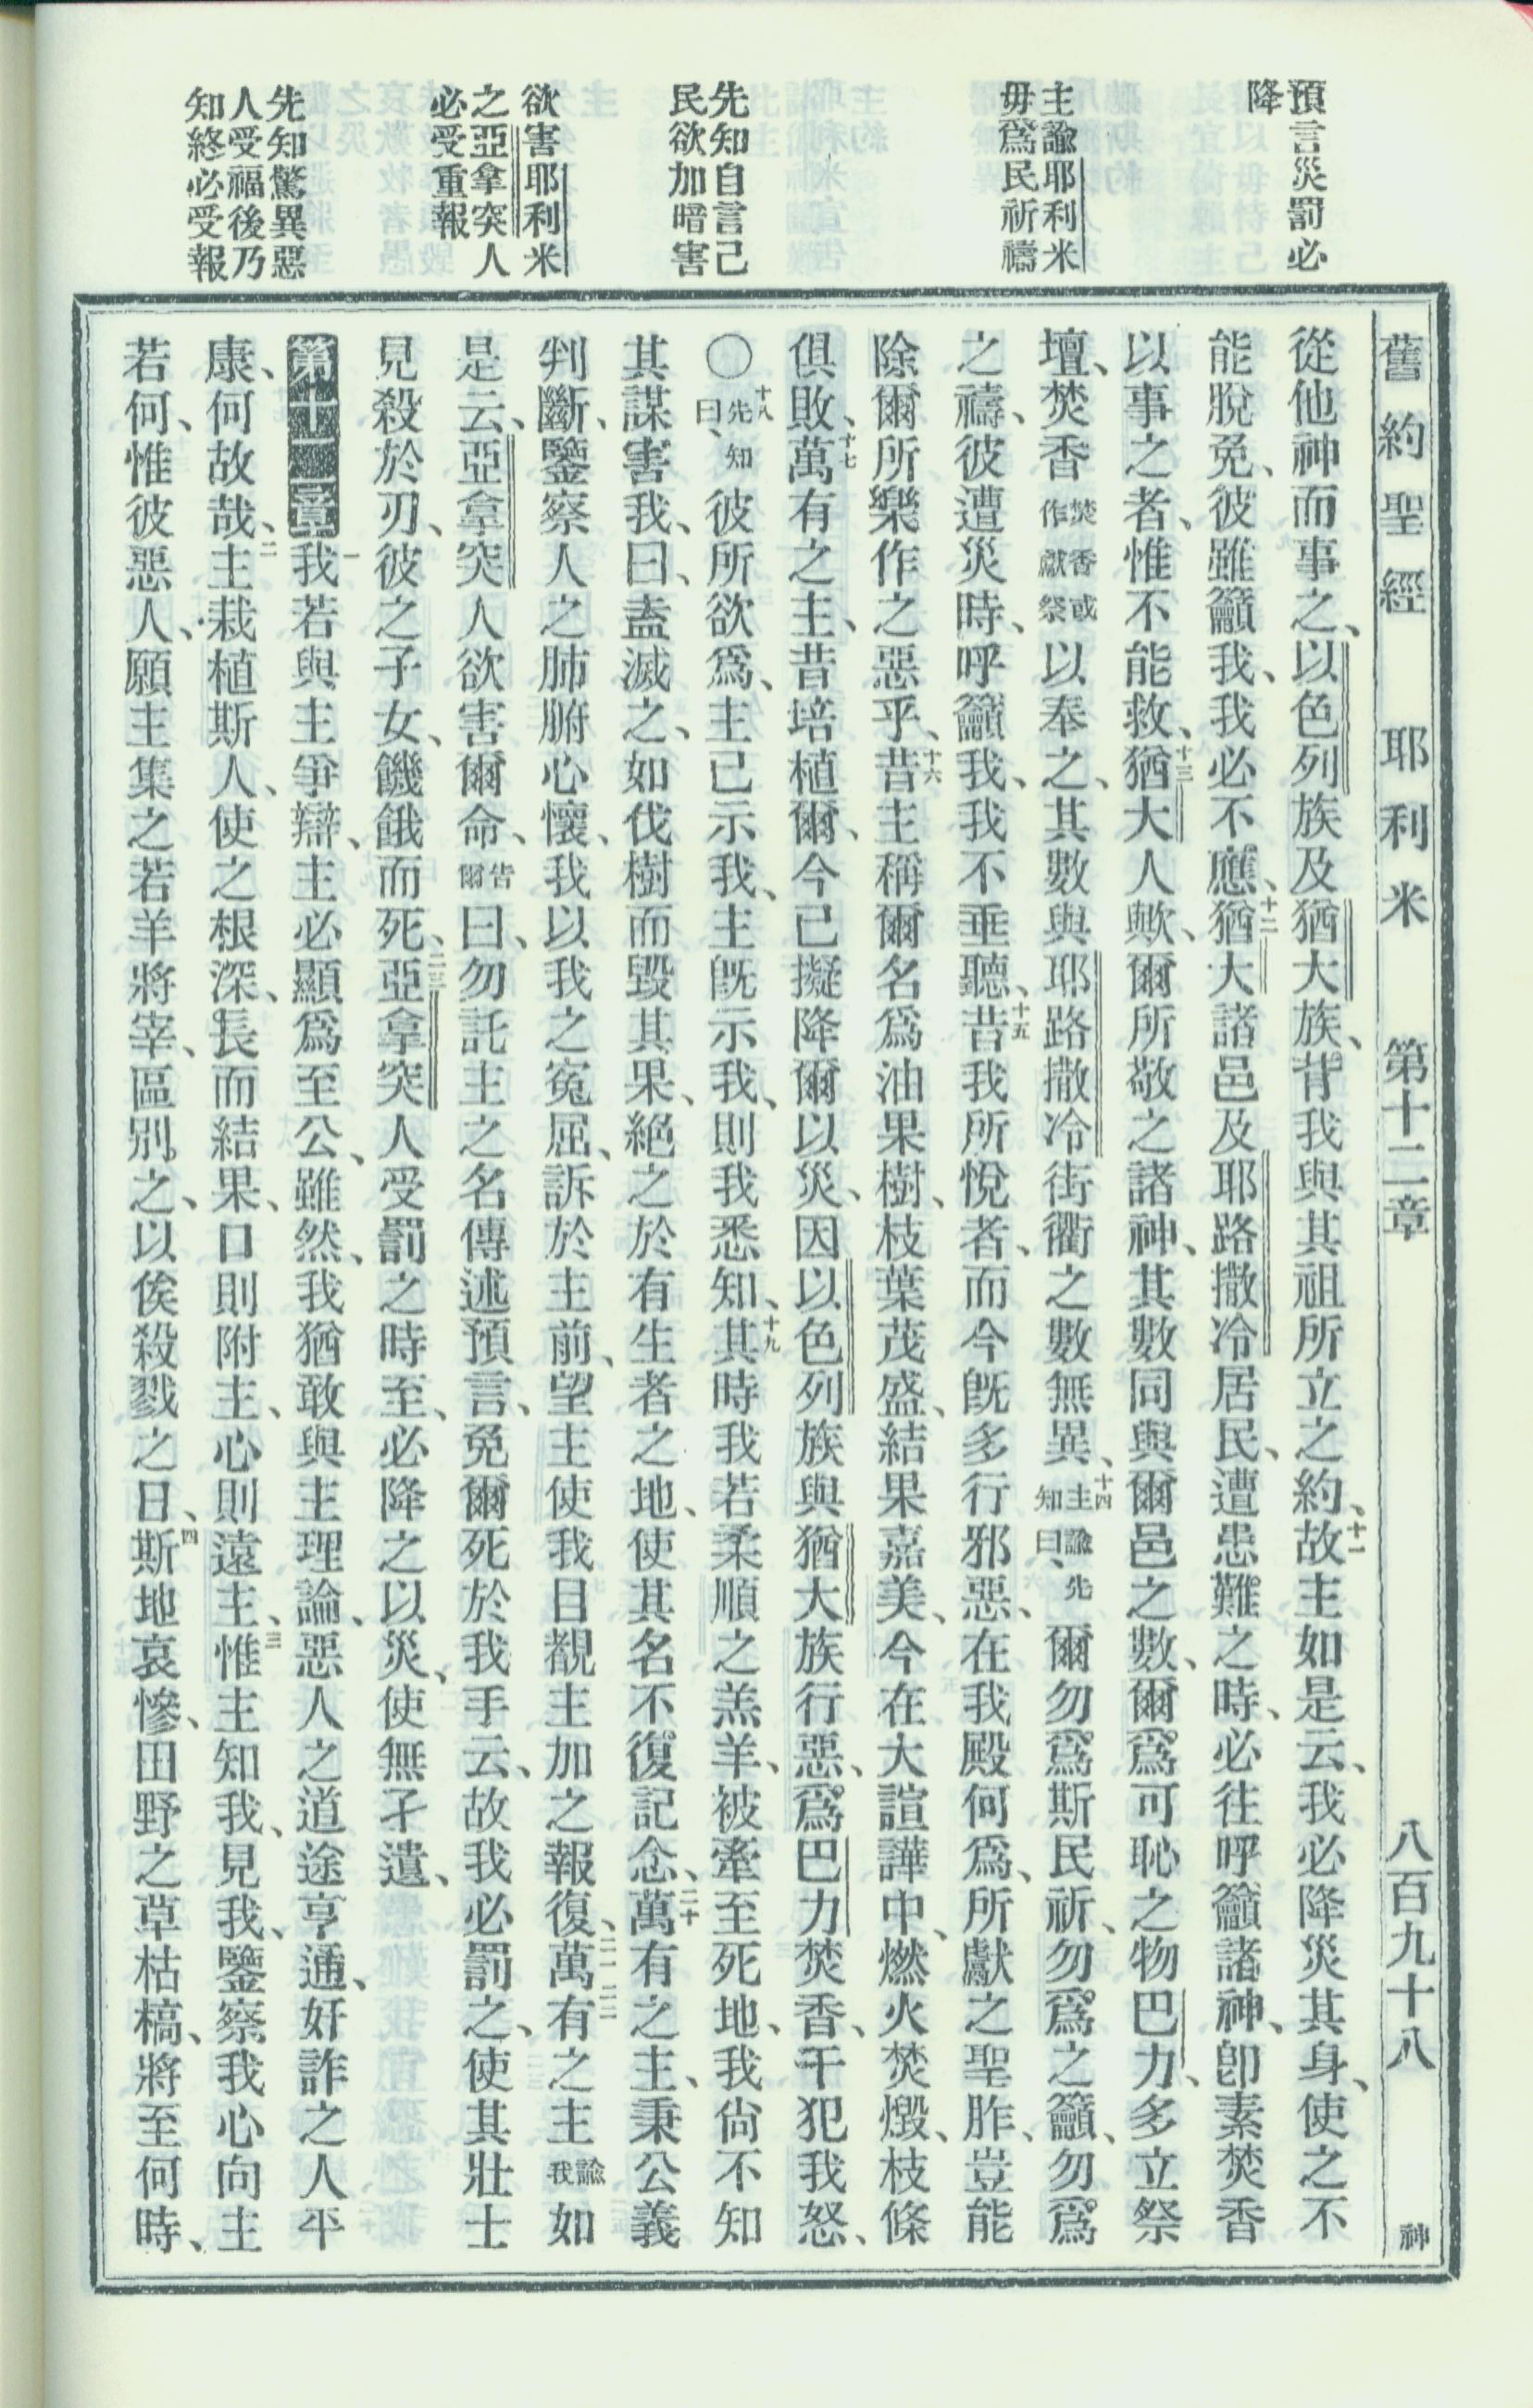 舊約聖經　耶利米　第十二章　八百九十八　神
預言災罰必
降
主諭耶利米
毋爲民祈禱
先知自言己
民欲加暗害
欲害耶利米
之亞拿突人
必受重報
先知驚異惡
人受福後乃
知終必受報
從他神而事之、以色列族及猶大族、背我與其祖所立之約、十一故主如是云、我必降災其身、使之不
能脫免、彼雖籲我、我必不應、十二猶大諸邑及耶路撒冷居民、遭患難之時、必往呼籲諸神、卽素焚香
以事之者、惟不能救、十三猶大人歟、爾所敬之諸神、其數同與爾邑之數、爾爲可恥之物巴力、多立祭
壇、焚香焚香或作獻祭以奉之、其數與耶路撒冷街衢之數無異、十四主諭先知曰、爾勿爲斯民祈、勿爲之籲、勿爲
之禱、彼遭災時、呼籲我、我不垂聽、十五昔我所悅者、而今旣多行邪惡、在我殿何爲、所獻之聖胙、豈能
除爾所樂作之惡乎、十六昔主稱爾名爲油果樹、枝葉茂盛、結果嘉美、今在大諠譁中、燃火焚燬、枝條
俱敗、十七萬有之主、昔培植爾、今已擬降爾以災、因以色列族與猶大族行惡、爲巴力焚香、干犯我怒、
〇十八先知曰、彼所欲爲、主已示我、主旣示我、則我悉知、十九其時我若柔順之羔羊、被牽至死地、我尙不知
其謀害我、曰、盍滅之、如伐樹而毀其果、絕之於有生者之地、使其名不復記念、二十萬有之主、秉公義
判斷、鑒察人之肺腑心懷、我以我之寃屈、訴於主前、望主使我目覩主加之報復、二一二二萬有之主諭我如
是云、亞拿突人欲害爾命、告爾曰、勿託主之名傳述預言、免爾死於我手云、故我必罰之、使其壯士
見殺於刃、彼之子女、饑餓而死、二三亞拿突人受罰之時至、必降之以災、使無孑遺、
第十二章一我若與主爭辯、主必顯爲至公、雖然、我猶敢與主理論、惡人之道途亨通、奸詐之人平
康、何故哉、二主栽植斯人、使之根深、長而結果、口則附主、心則遠主、三惟主知我、見我、鑒察我心向主
若何、惟彼惡人、願主集之若羊將宰、區別之、以俟殺戮之日、四斯地哀慘、田野之草枯槁、將至何時、